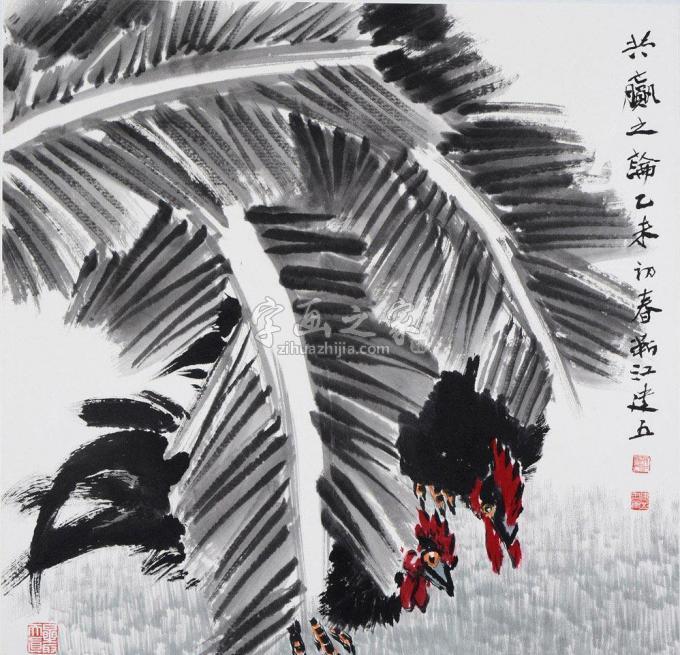 共赢之論乙未初春浙江建五
字画之家
zihuazhijia.com